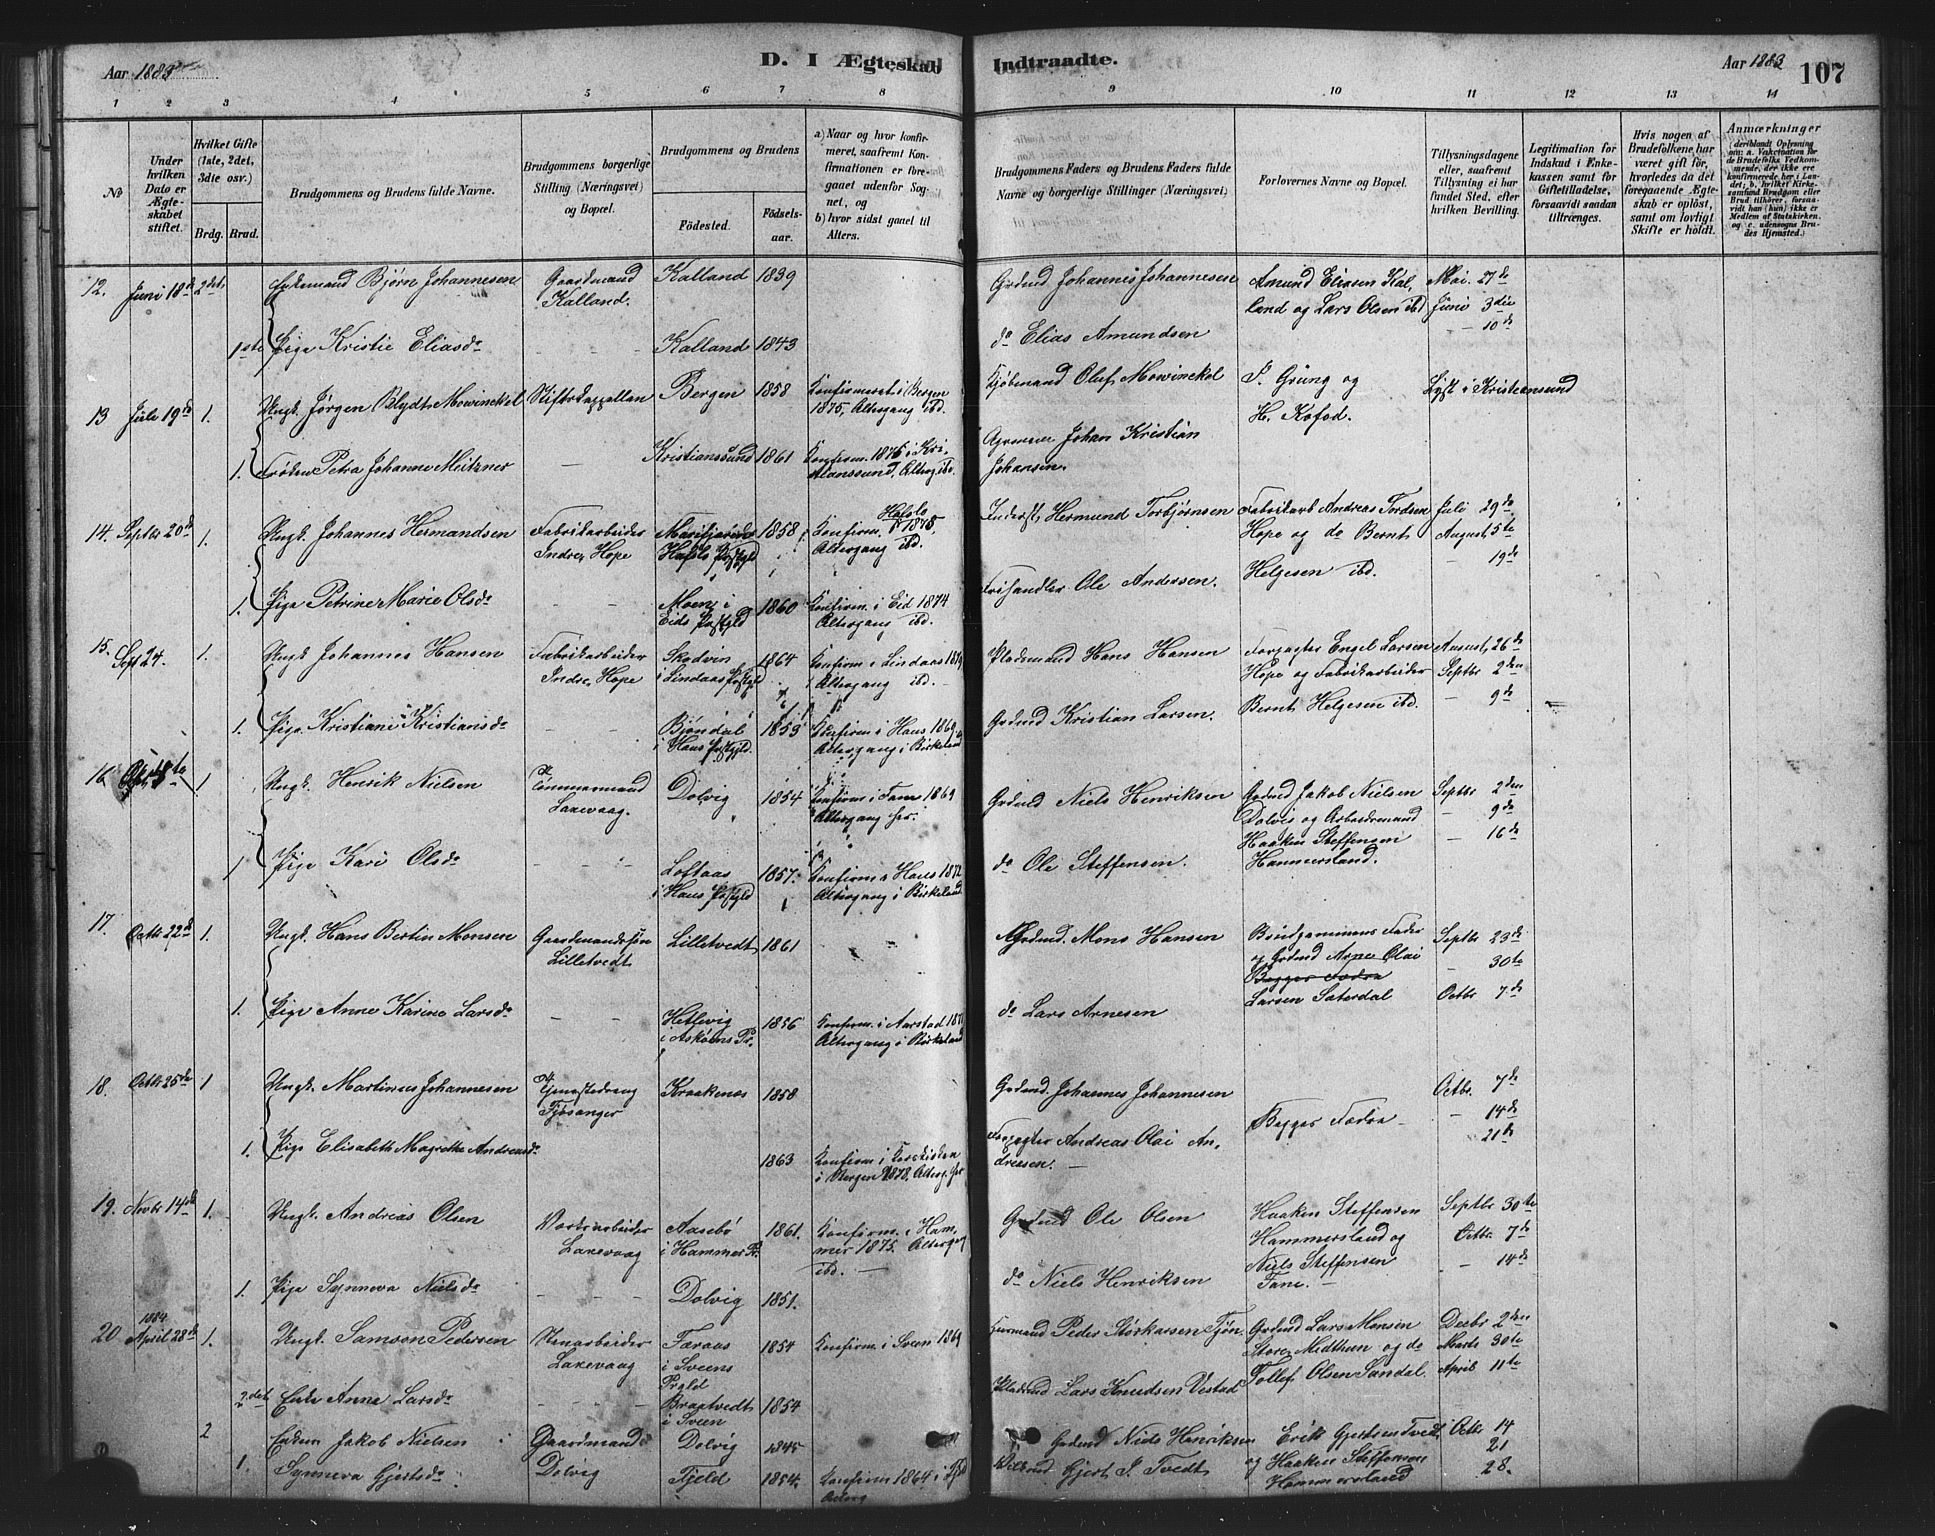 Aar 1883
D. I Ægteskab Indtraadte.
Aar 1883
107
1 2 3 4 5 6 7 8 9 10 11 12 13 14
No
Under hvilken Dato er Ægteskabet stiftet.
Hvilket Gifte (1ste, 2det, 3die osv.)
Brdg. Brud.
Brudgommens og Brudens fulde Navne.
Brudgommens borgerlige Stilling (Næringsvei) og Bopæl.
Brudgommens og Brudens
Fødested.
Fødselsaar.
a) Naar og hvor konfirmeret, saafremt Konfirmationen er foregaaet udenfor Sognet, og
b) hvor sidst gaaet til Alters.
Brudgommens Faders og Brudens Faders fulde Navne og borgerlige Stillinger (Næringsvei)
Forlovernes Navne og Bopæl.
Tillysningsdagene eller, saafremt Tillysning ei har fundet Sted, efter hvilken Bevilling.
Legitimation for Indskud i Enkekassen samt for Giftetilladelse, forsaavidt saadan tiltrænges.
Hvis nogen af Brudefolkene har været gift før, hvorledes da det foregaaende Ægteskab er opløst, samt om lovligt Skifte er holdt.
Anmærkninger
(deriblandt Oplysning om: a. Vakcination for de Brudefolks Vedkommende, der ikke ere konfirmerede her i Landet; b. hvilket Kirkesamfund Brudgom eller Brud tilhører, forsaavidt han (hun) ikke er Medlem af Statskirken, og c. udensogns Brudes Hjemsted.)
12. Juni 18de 2det Enkemand Bjørn Johannesen Gaardmand Kalland. Kalland 1839 Grdmd Johannes Johannesen Amund Eliasen Kalland og Lars Olsen ibd Mai 27de Juni 3die – 10de
1ste Pige Kristie Eliasdr – – – Kalland 1843 do Elias Amundsen
13 Juli 19de 1. Ungk. Jørgen Blydt Mowinckel Stiftskappellan Bergen 1858 Konfirmeret i Bergen 1875, Altergang ibd. Kjøbmand Oluf Mowinckel P. Grung og H. Kofod. Lyst i Kristiansund
1. Frøken Petra Johanne Meitzner – – Kristianssund 1861 Konfirm. 1876 i Kristianssund, Alterg. ibd. Johan Kristian Johansen.
14. Septbr 20de 1. Ungk. Johannes Hermandsen Fabrikarbeider Indre Hope Marifjæren Hafslo Prstgld 1858 Konfirm. Hafslo 1873, Altergang ibd. Inderst Hermund Torbjørnsen Fabrikarb Andreas Tordsen Hope og do Bernt Helgesen ibd. Juli 29de August 5te – 19de
1. Pige Petrine Marie Olsdr – – Moen i Eids Prstgld 1860 Konfirm. i Eid 1874 Altergang ibd. Frihandler Ole Andersen.
15. Sept 24. 1. Ungk Johannes Hansen Fabrikarbeider Indre Hope Skodvin i Lindaas Prstgld 1864 Konfirm i Lindaas 1879 Altergang ibd. Pladsmand Hans Hansen Forpagter Engel Larsen Hope og Fabrikarbeider Bernt Helgesen ibd. August 26de Septbr 2den – 9de
1. Pige Kristiane Kristiansdr – – Bjørndal i Haus Prstgjld. 1853 Konfirm i Haus 1869 Altergang i Birkeland Grdmd Kristian Larsen.
16. 1 Ungk. Henrik Nielsen Tømmermand Laxevaag. Dolvig 1854 Konfirm. i Fane 1869 Altergang her. Grdmd Niels Henriksen Grdmd Jakob Nielsen Dolvig og Arbeidsmand Haaken Steffensen Hammersland. Septbr 2den – 9de – 16de
1 Pige Kari Olsdr – – Loftaas i Haus Prstgld 1857. Konfirm i Haus 1872 Altergang i Birkeland. do Ole Steffensen.
17. Octbr 22de 1. Ungk. Hans Bertin Monsen Gaardmandssøn Lilletvedt Lilletvedt 1861 – – Grdmd. Mons Hansen Brudgommens Fader og Grdmd Arne Olai Begges Fædre Larsen Sæterdal Septbr 23de – 30te Octbr 7de
1. Pige Anne Karine Larsdr – – Hetlevig i Askøens Pr. 1856 Konfirm. i Aarstad 1871 Altergang i Birkeland do Lars Arnesen
18. Octbr 25de 1 Ungk. Martinus Johannesen Tjenestedreng Fjøsanger Kraakenæs 1858 Grdmd. Johannes Johannesen Begges Fædre – Octbr. 7de – 14de 21de
1. Pige Elisabeth Magrethe Andreasdr 1863 Konfirm. i Korskirken i Bergen 1878, Alterg. her Forpagter Andreas Olai Andreesen. –
19. Novbr 14de 1. Ungk. Andreas Olsen Værksarbeider Laxevaag Aasebø i Hammer Pr. 1861. Konfirm. i Hammer 1875. Altergang ibd. – Grdmd Ole Olsen Haaken Steffensen Hammersland og Niels Steffensen Fane. – Septbr 30te Octbr. 7de – 14de
1. Pige Synneva Nielsdr – – – Dolvig 1851. do Niels Henriksen
20 1884 April 28de 1. Ungk. Samson Pedersen Stenarbeider Laxevaag Taraas i Sveens Prgld 1854 Konfirm. i Sveen 1869 Huusmand Peder Størkarsen Tjøn Grdmd Lars Monsen Store Midthun og do Tollef Olsen Sandal. Decbr 2den Marts 30te April 11te
2det Enke Anna Larsdr – – – Braatvedt i Sveen 1854 Pladsmd Lars Knudsen Vestad
2 Enkem Jakob Nielsen Gaardmand Dolvig Dolvig 1845 Grdmd Niels Henriksen Erik Gjertsen Tvedt og Haaken Steffensen Hammersland Octbr 14 21 28.
1. Synneva Gjertsdr Fjeld 1854. Konfirm 1864 i Gjert J. Tvedt